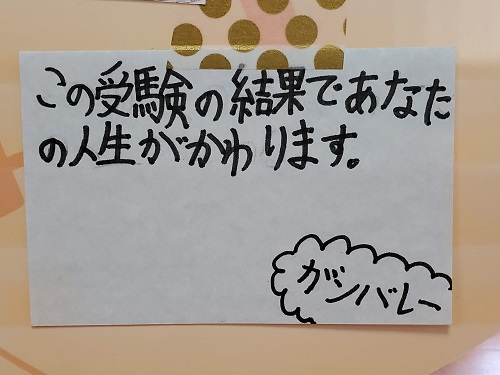 この受験の結果であなた
の人生がかわります。
ガンバレー